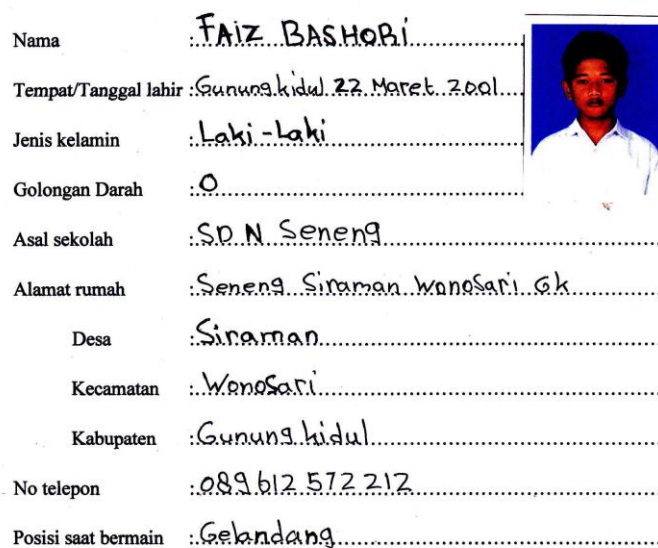 Nama : FAIZ BASHORI
Tempat/Tanggal lahir : Gunungkidul 22 Maret 2001
Jenis kelamin : Laki-Laki
Golongan Darah : O
Asal sekolah : SD N Seneng
Alamat rumah : Seneng Siraman Wonosari Gk
Desa : Siraman
Kecamatan : Wonosari
Kabupaten : Gunung kidul
No telepon : 089 612 572 212
Posisi saat bermain : Gelandang